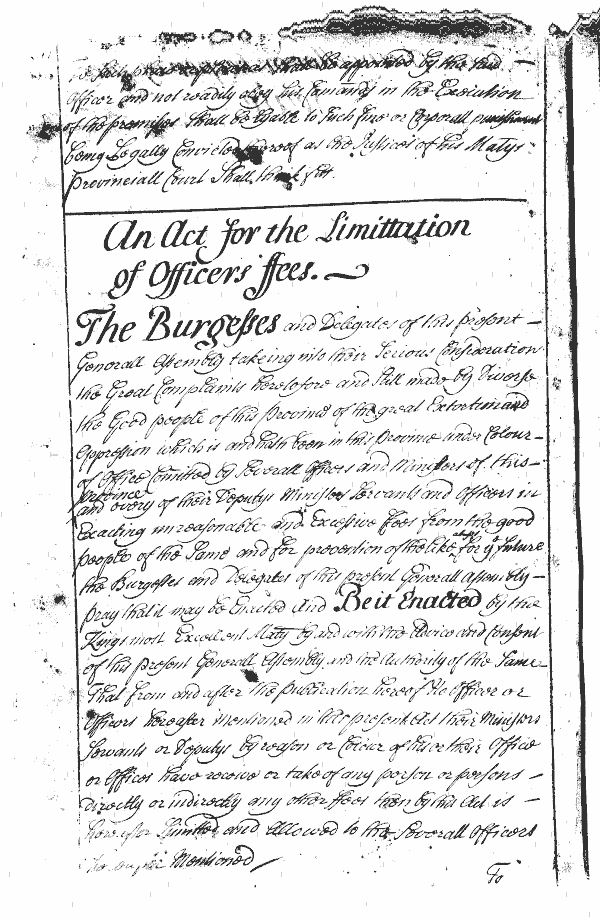 shall be appointed by the said
Officer and not readily obey his Comands in the Execution
of the premises shall be lyable to such fine or Corporall punishment
being Legally Convicted thereof as the Justices of his Matys
Provinciall Court Shall think fitt.
An Act for the Limittation
of Officers ffees.
The Burgesses and Delegates of this present
Generall Assembly takeing into their Serious Consideration
the Great Complaints heretofore and still made by Diverse
the Good people of this Province of the great Extortion and
Oppression which is and hath been in this Province under Colour
of Office Comitted by Severall Officers and Ministers of this
Province
and every of their Deputys Ministers Servants and Officers in
Exacting unreasonable and Excessive ffees from the good
people of the Same and for prevention of the like for ye future
the Burgesses and Delegates of this present Generall Assembly
pray that it may be Enacted And Be it Enacted by the
Kings most Excellent Maty by and with the Advice and Consent
of this present Generall Assembly and the Authority of the Same
That from and after the publication hereof No Officer or
Officers hereafter mentioned in this present Act their Ministers
Servants or Deputys by reason or Colour of his or their Office
or Offices have receive or take of any person or persons
directly or indirectly any other ffees then by this Act is
hereafter Limitted and Allowed to the Severall Officers
hereafter Mentioned
To